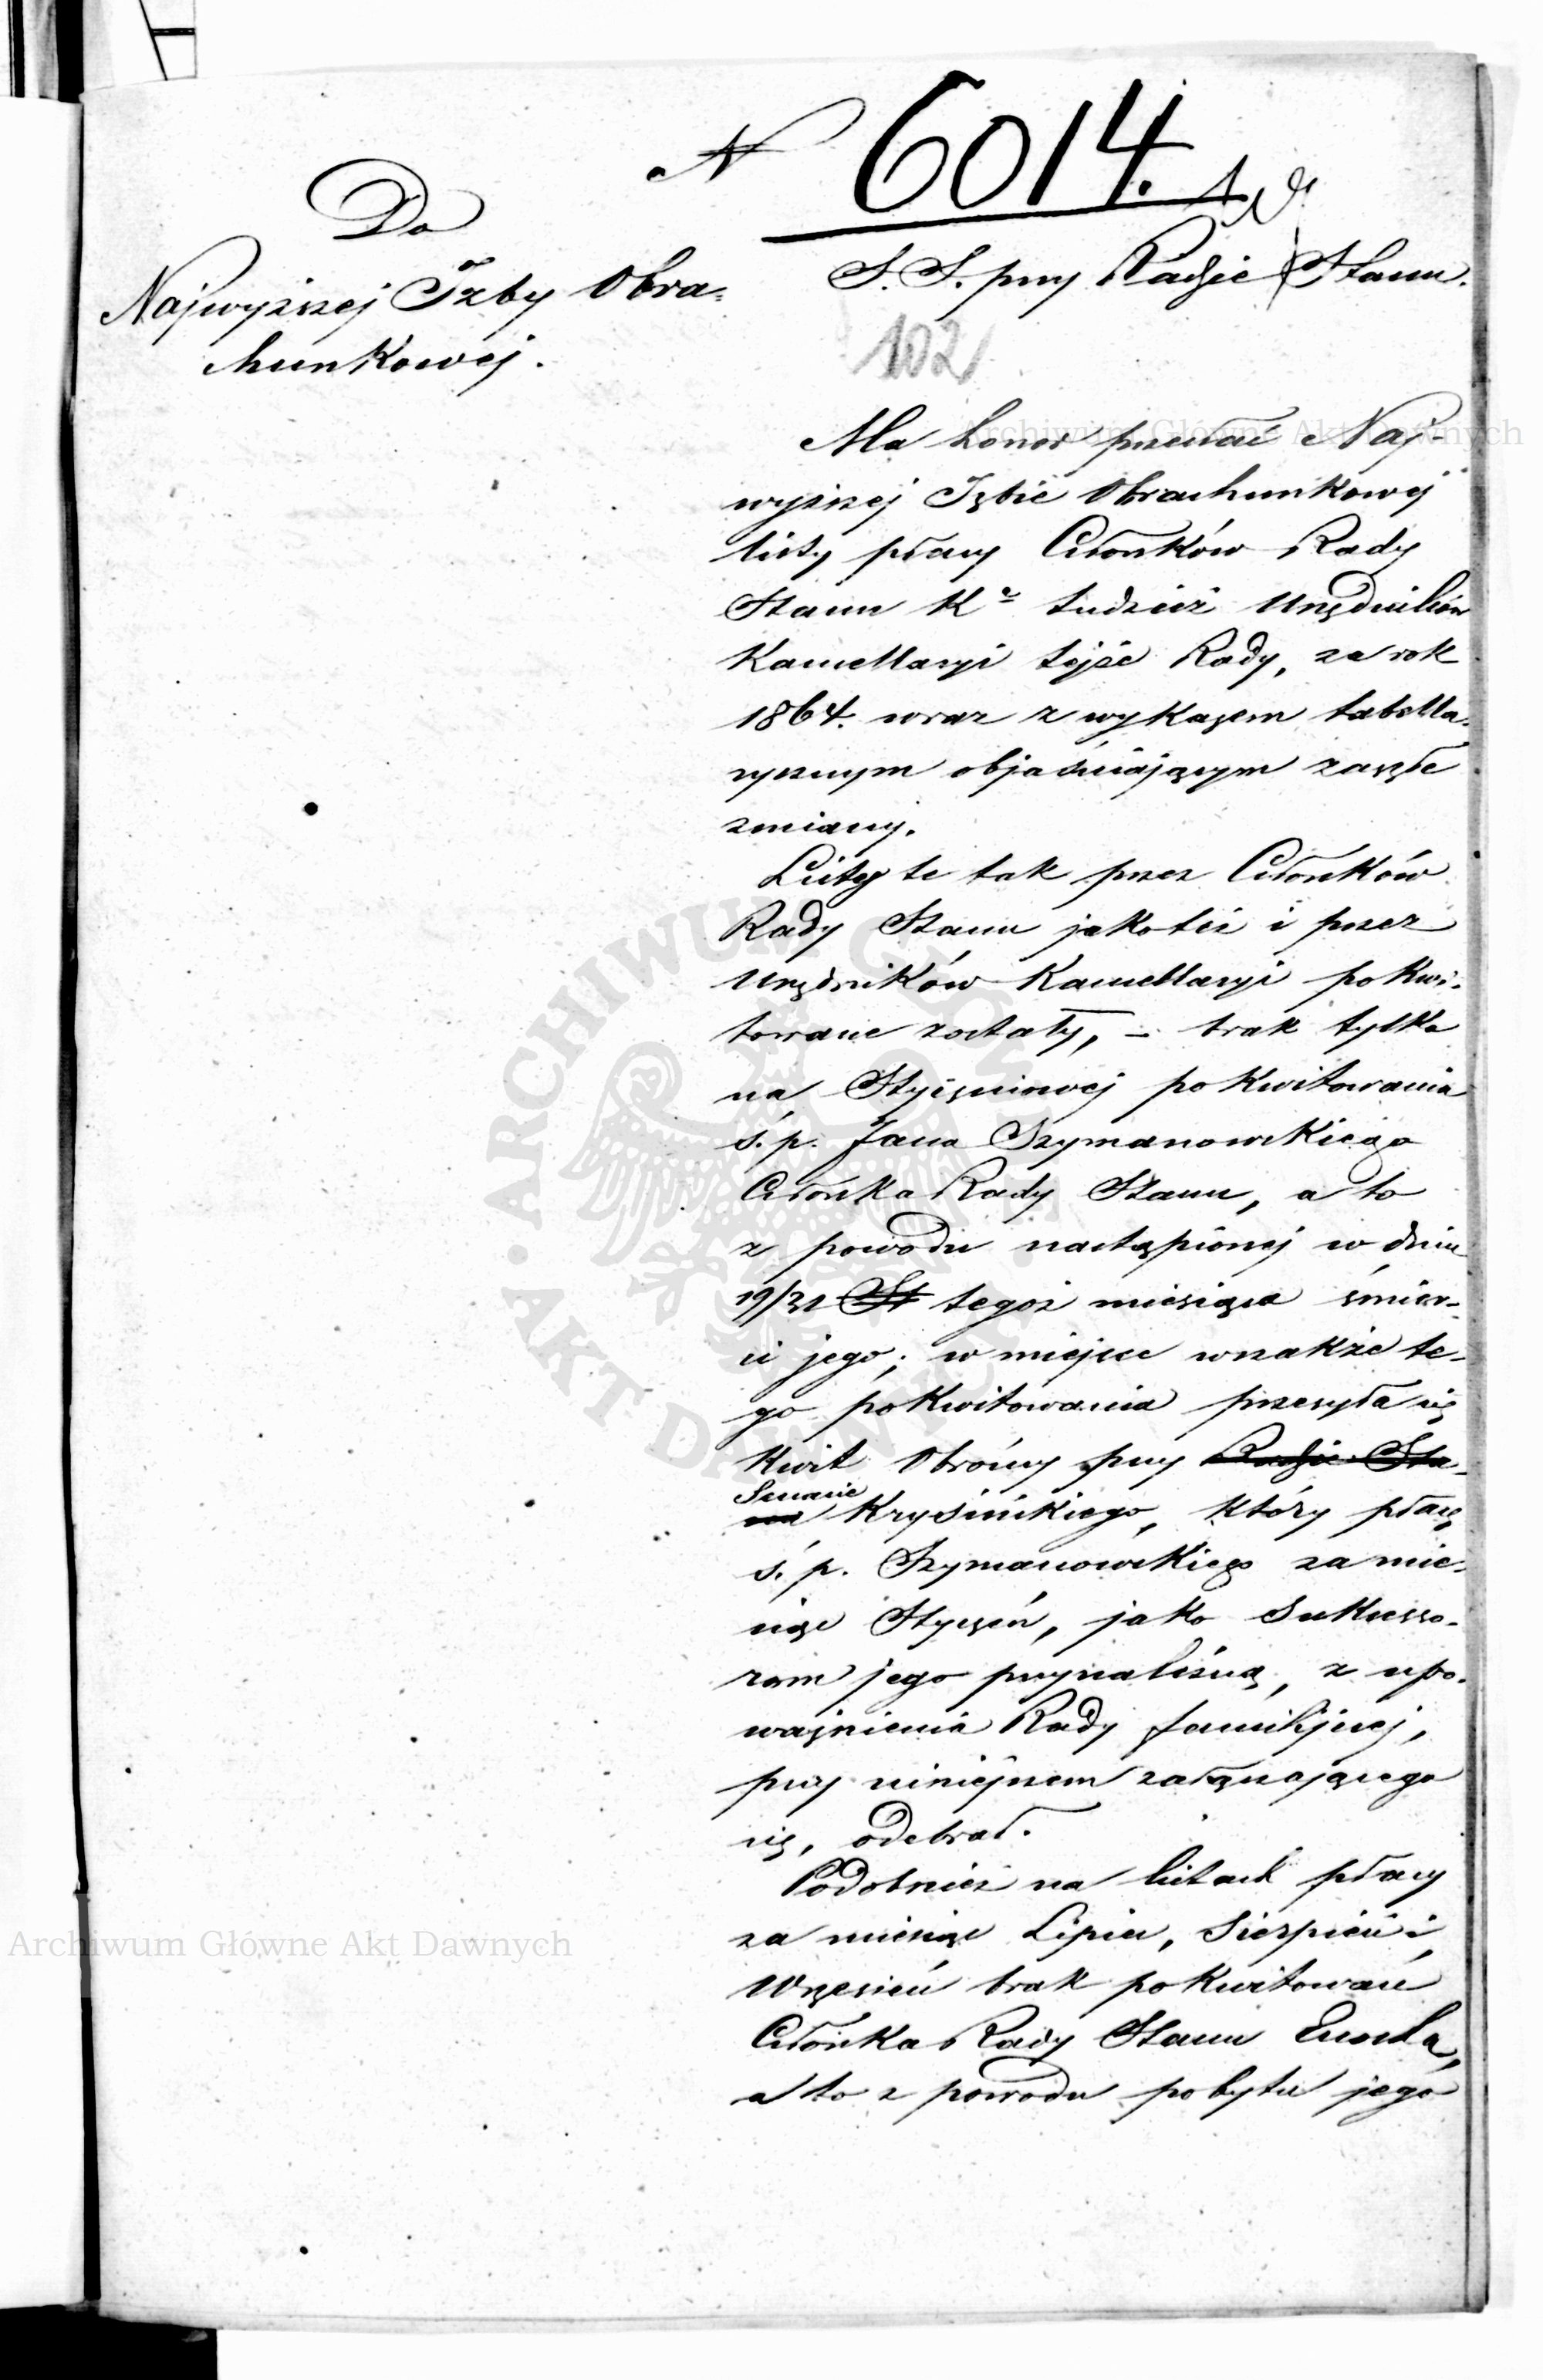 N 6014.
Do
Najwyższej Izby Obra-
chunkowej.
S. S. przy Radzie Stanu.
102
Archiwum Główne Akt Dawnych
Ma honor przesłać Naj-
wyższej Izbie Obrachunkowej
listy płacy Członków Rady
Stanu Ka tudzież Urzędników
Kancellaryi tejże Rady, za rok
1864. wraz z wykazem tabella-
rycznym objaśniającym zaszłe
zmiany.
Listy te tak przez Członków
Rady Stanu jakoteż i przez
Urzędników Kancellaryi pokwi-
towane zostały, – brak tylko
na Styczniowej pokwitowania
ś. p. Jana Szymanowskiego
Członka Rady Stanu, a to
z powodu nastąpionej w dniu
19/31 St tegoż miesiąca śmier-
ci jego; w miejsce wszakże te-
go pokwitowania przesyła się
kwit Obrońcy przy Radzie Sta-
nu Senacie Krysińskiego, który płacę
ś. p. Szymanowskiego za mie-
siąc Styczeń, jako Sukcesso-
rom jego przynależną, z upo-
ważnienia Rady familijnej,
przy niniejszem załączającego
się, odebrał.
Podobnież na listach płacy
za miesiąc Lipiec, Sierpień i
Wrzesień brak pokwitowań
Członka Rady Stanu Enocha,
a to z powodu pobytu jego
ARCHIWUM GŁÓWNE · AKT DAWNYCH ·
Archiwum Główne Akt Dawnych